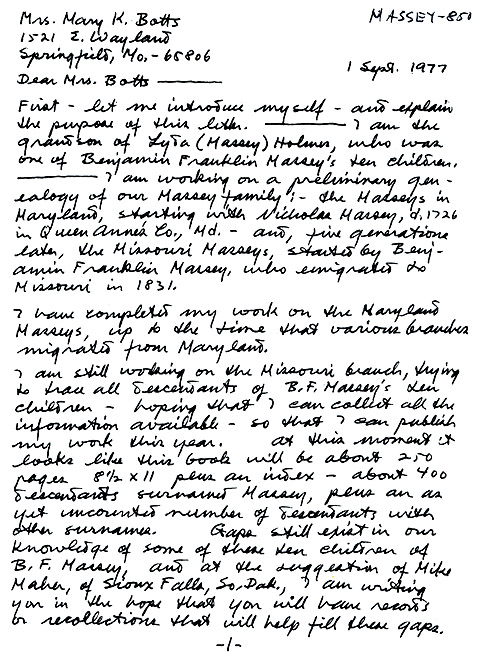 Mrs. Mary K. Botts
MASSEY-850
1521 E. Wayland
Springfield, Mo. - 65806
1 Sept. 1977
Dear Mrs. Botts ———
First - let me introduce myself - and explain
the purpose of this letter. ——— I am the
grandson of Lyda (Massey) Holmes, who was
one of Benjamin Franklin Massey's ten children.
——— I am working on a preliminary gen-
ealogy of our Massey family: - the Masseys in
Maryland, starting with Nicholas Massey, d. 1726
in Queen Anne's Co., Md. - and, five generations
later, the Missouri Masseys, started by Benj-
amin Franklin Massey, who emigrated to
Missouri in 1831.
I have completed my work on the Maryland
Masseys, up to the time that various branches
migrated from Maryland.
I am still working on the Missouri branch, trying
to trace all descendants of B.F. Massey's ten
children - hoping that I can collect all the
information available - so that I can publish
my work this year. at this moment it
looks like this book will be about 250
pages 8½ x 11 plus an index - about 400
descendants surnamed Massey, plus an as
yet uncounted number of descendants with
other surnames. Gaps still exist in our
knowledge of some of these ten children of
B.F. Massey, and at the suggestion of Mike
Maher, of Sioux Falls, So. Dak., I am writing
you in the hope that you will have records
or recollections that will help fill these gaps.
-1-